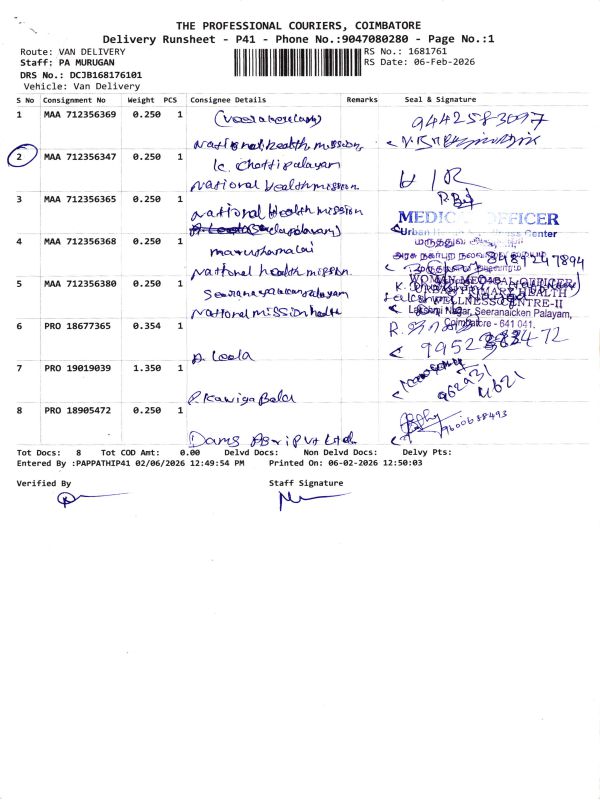 THE PROFESSIONAL COURIERS, COIMBATORE
Delivery Runsheet - P41 - Phone No.:9047080280 - Page No.:1
Route: VAN DELIVERY
RS No.: 1681761
Staff: PA MURUGAN
RS Date: 06-Feb-2026
DRS No.: DCJB168176101
Vehicle: Van Delivery
S No Consignment No Weight PCS Consignee Details Remarks Seal & Signature
1 MAA 712356369 0.250 1
9442583097
National health mission
2 MAA 712356347 0.250 1
K. Chettipalayam
National health mission
3 MAA 712356365 0.250 1
National Health mission
MEDICAL OFFICER
Urban Health Wellness Center
4 MAA 712356368 0.250 1
maruthamalai
8489247894
National health mission
5 MAA 712356380 0.250 1
WOMAN MEDICAL OFFICER
URBAN PRIMARY HEALTH
WELLNESS CENTRE-II
National mission health
Lakshmi Nagar, Seeranaicken Palayam,
Coimbatore - 641 041.
6 PRO 18677365 0.354 1
A. Leela
7 PRO 19019039 1.350 1
P. Kaviya Bala
8 PRO 18905472 0.250 1
9600688493
Dams Agri Pvt Ltd
Tot Docs: 8 Tot COD Amt: 0.00 Delvd Docs: Non Delvd Docs: Delvy Pts:
Entered By :PAPPATHIP41 02/06/2026 12:49:54 PM Printed On: 06-02-2026 12:50:03
Verified By Staff Signature